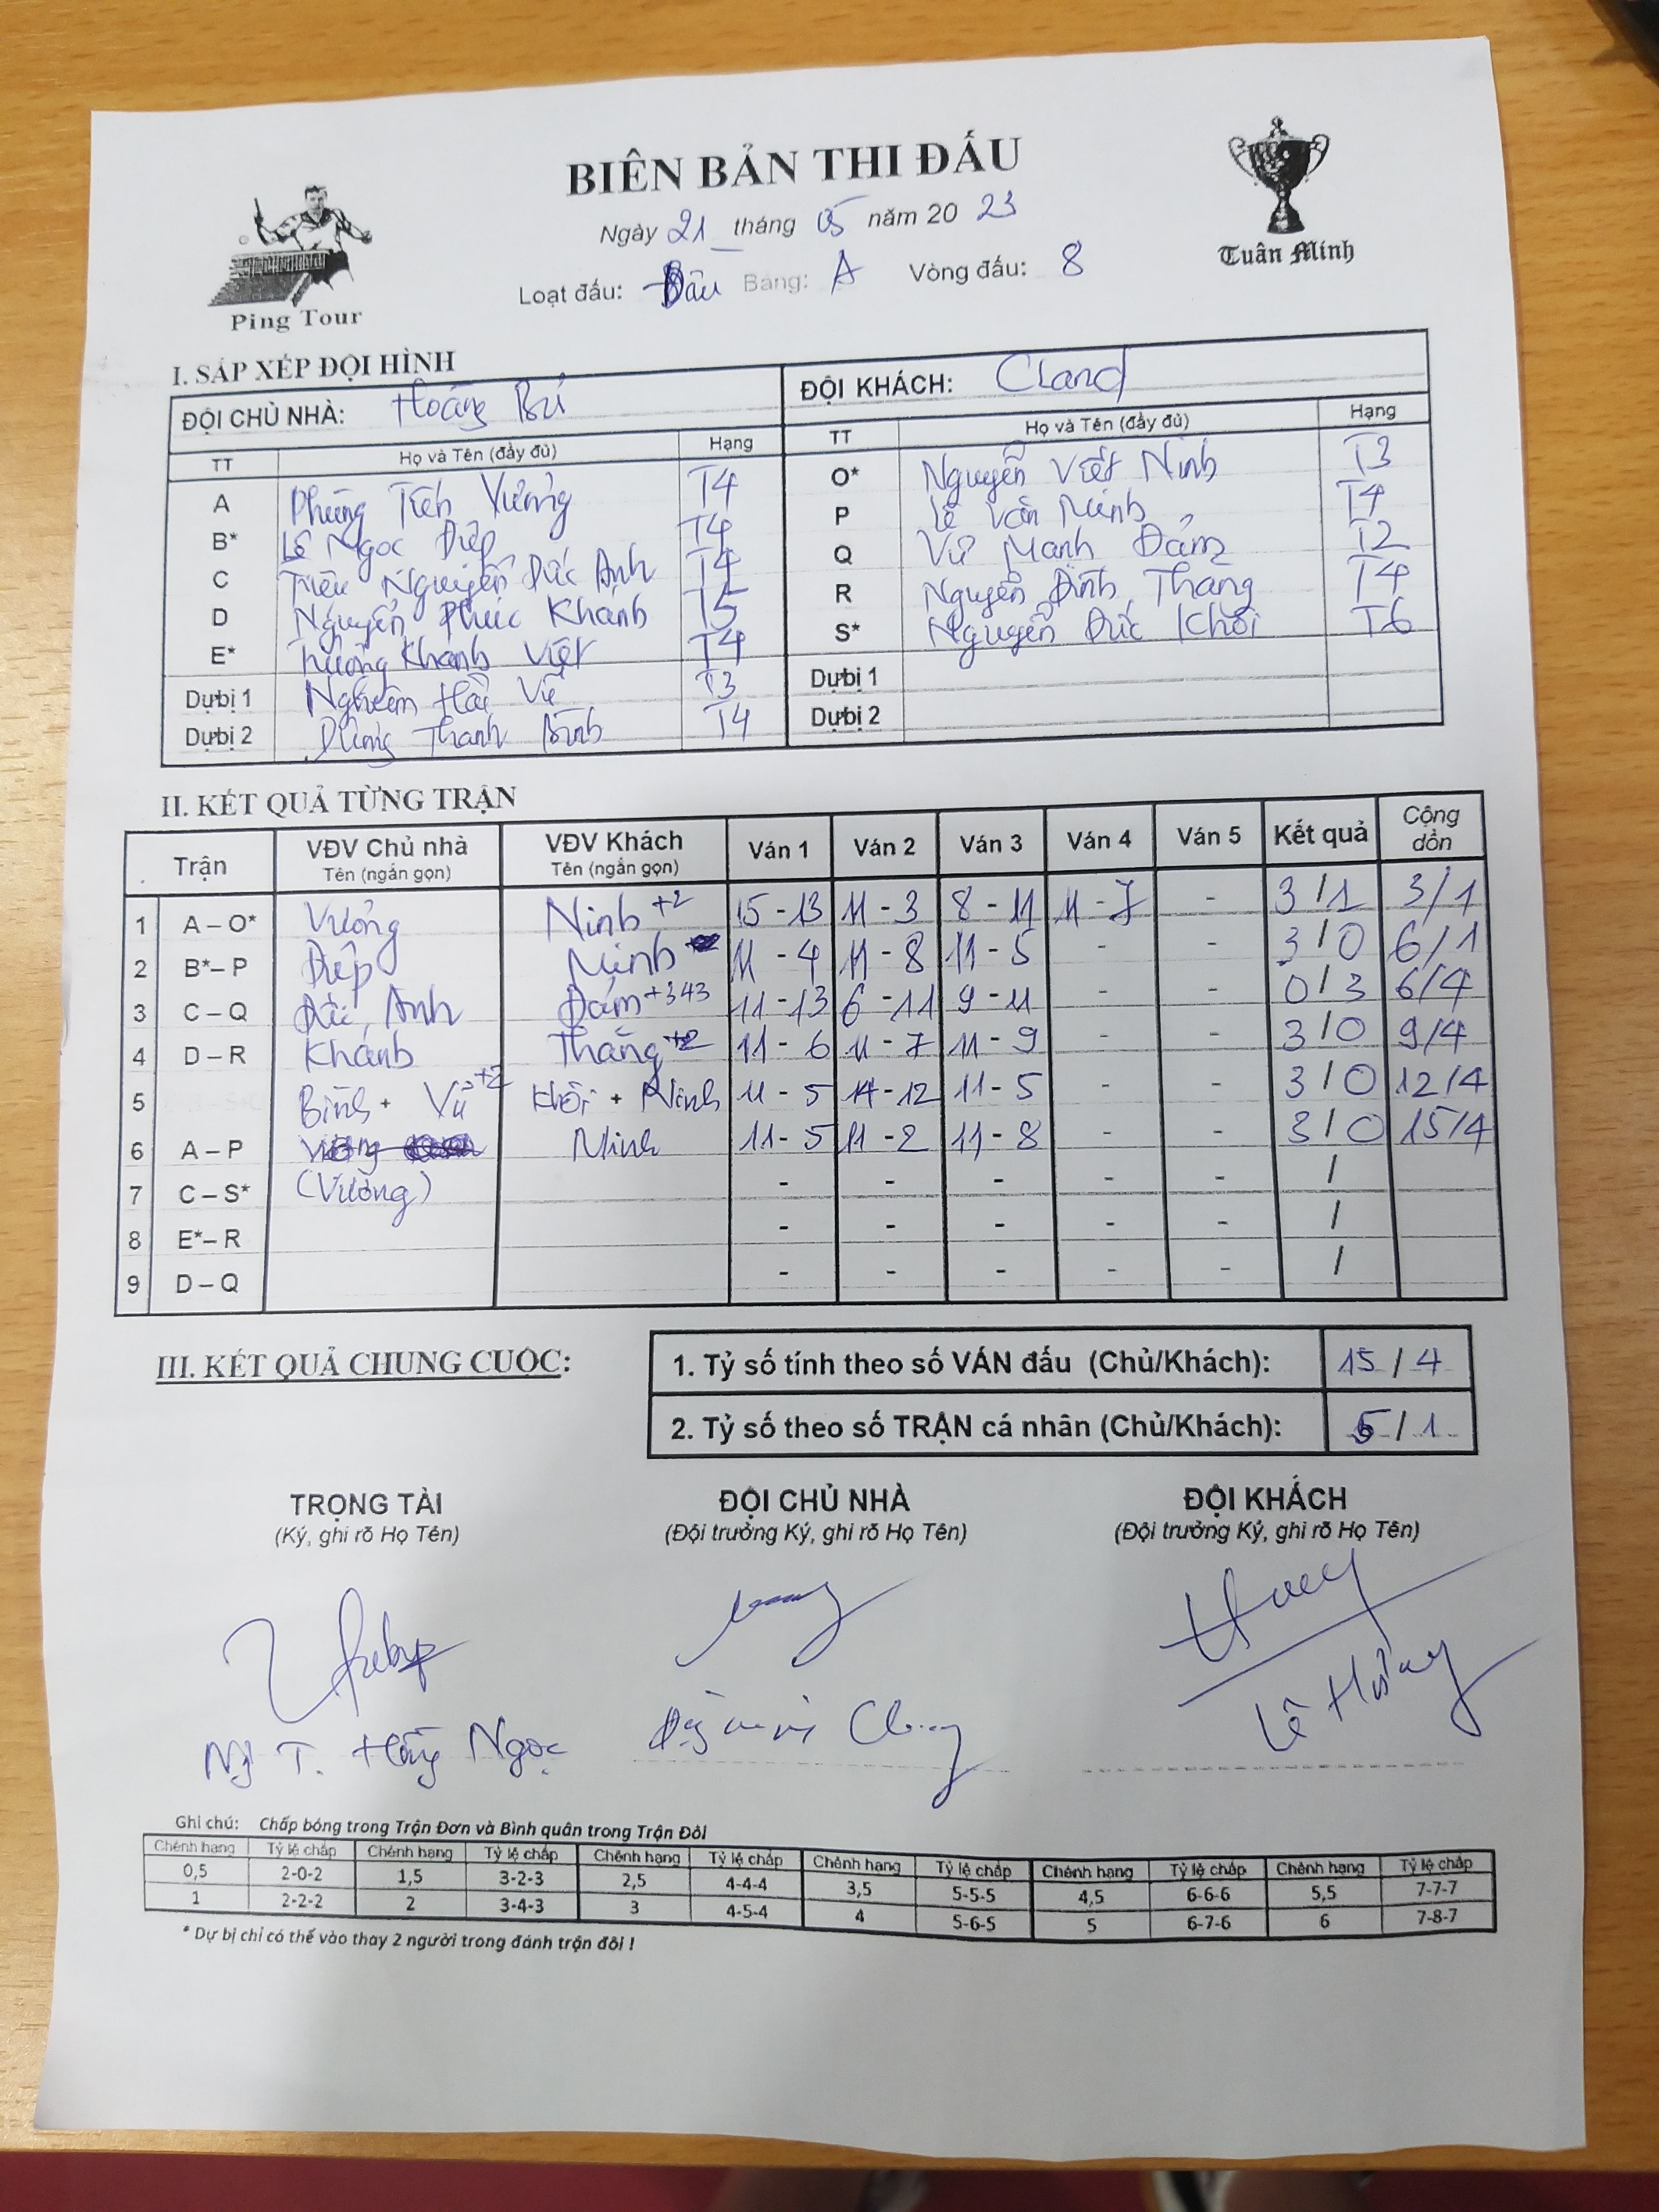 BIÊN BẢN THI ĐẤU
Ngày 21 tháng 05 năm 20 23
Loạt đấu: Bảng: A Vòng đấu: 8
Ping Tour
Tuân Minh
I. SẮP XẾP ĐỘI HÌNH
ĐỘI CHỦ NHÀ: Hoàng ĐỘI KHÁCH: CLand
TT Họ và Tên (đầy đủ) Hạng TT Họ và Tên (đầy đủ) Hạng
A Phùng Vương T4 O* Nguyễn Viết Ninh T3
B* Lê Ngọc Điệp T4 P Lê Văn Minh T4
C Triệu Nguyễn Đức Anh T4 Q Vũ Mạnh Đảm T2
D Nguyễn Phúc Khánh T5 R Nguyễn Đình Thắng T4
E* Trương Khánh Việt T4 S* Nguyễn Đức Khôi T6
Dự bị 1 Nghiêm Hải Vũ T3 Dự bị 1
Dự bị 2 Thanh Bình T4 Dự bị 2
II. KẾT QUẢ TỪNG TRẬN
Trận VĐV Chủ nhà Tên (ngắn gọn) VĐV Khách Tên (ngắn gọn) Ván 1 Ván 2 Ván 3 Ván 4 Ván 5 Kết quả Cộng dồn
1 A – O* Vương Ninh +2 15 - 13 11 - 3 8 - 11 11 - 7 - 3 / 1 3/1
2 B*– P Điệp Minh 11 - 4 11 - 8 11 - 5 - - 3 / 0 6/1
3 C – Q Đức Anh Đảm +343 11 - 13 6 - 11 9 - 11 - - 0 / 3 6/4
4 D – R Khánh Thắng +2 11 - 6 11 - 7 11 - 9 - - 3 / 0 9/4
5 Bình + Vũ +2 Khôi + Ninh 11 - 5 14 - 12 11 - 5 - - 3 / 0 12/4
6 A – P Minh 11 - 5 11 - 2 11 - 8 - - 3 / 0 15/4
7 C – S* (Vương) - - - - - /
8 E*– R - - - - - /
9 D – Q - - - - - /
III. KẾT QUẢ CHUNG CUỘC:
1. Tỷ số tính theo số VÁN đấu (Chủ/Khách): 15 / 4
2. Tỷ số theo số TRẬN cá nhân (Chủ/Khách): 5 / 1
TRỌNG TÀI ĐỘI CHỦ NHÀ ĐỘI KHÁCH
(Ký, ghi rõ Họ Tên) (Đội trưởng Ký, ghi rõ Họ Tên) (Đội trưởng Ký, ghi rõ Họ Tên)
T. Hồng Ngọc Lê Hùng
Ghi chú: Chấp bóng trong Trận Đơn và Bình quân trong Trận Đôi
Chênh hạng Tỷ lệ chấp Chênh hạng Tỷ lệ chấp Chênh hạng Tỷ lệ chấp Chênh hạng Tỷ lệ chấp Chênh hạng Tỷ lệ chấp Chênh hạng Tỷ lệ chấp
0,5 2-0-2 1,5 3-2-3 2,5 4-4-4 3,5 5-5-5 4,5 6-6-6 5,5 7-7-7
1 2-2-2 2 3-4-3 3 4-5-4 4 5-6-5 5 6-7-6 6 7-8-7
* Dự bị chỉ có thể vào thay 2 người trong đánh trận đôi !